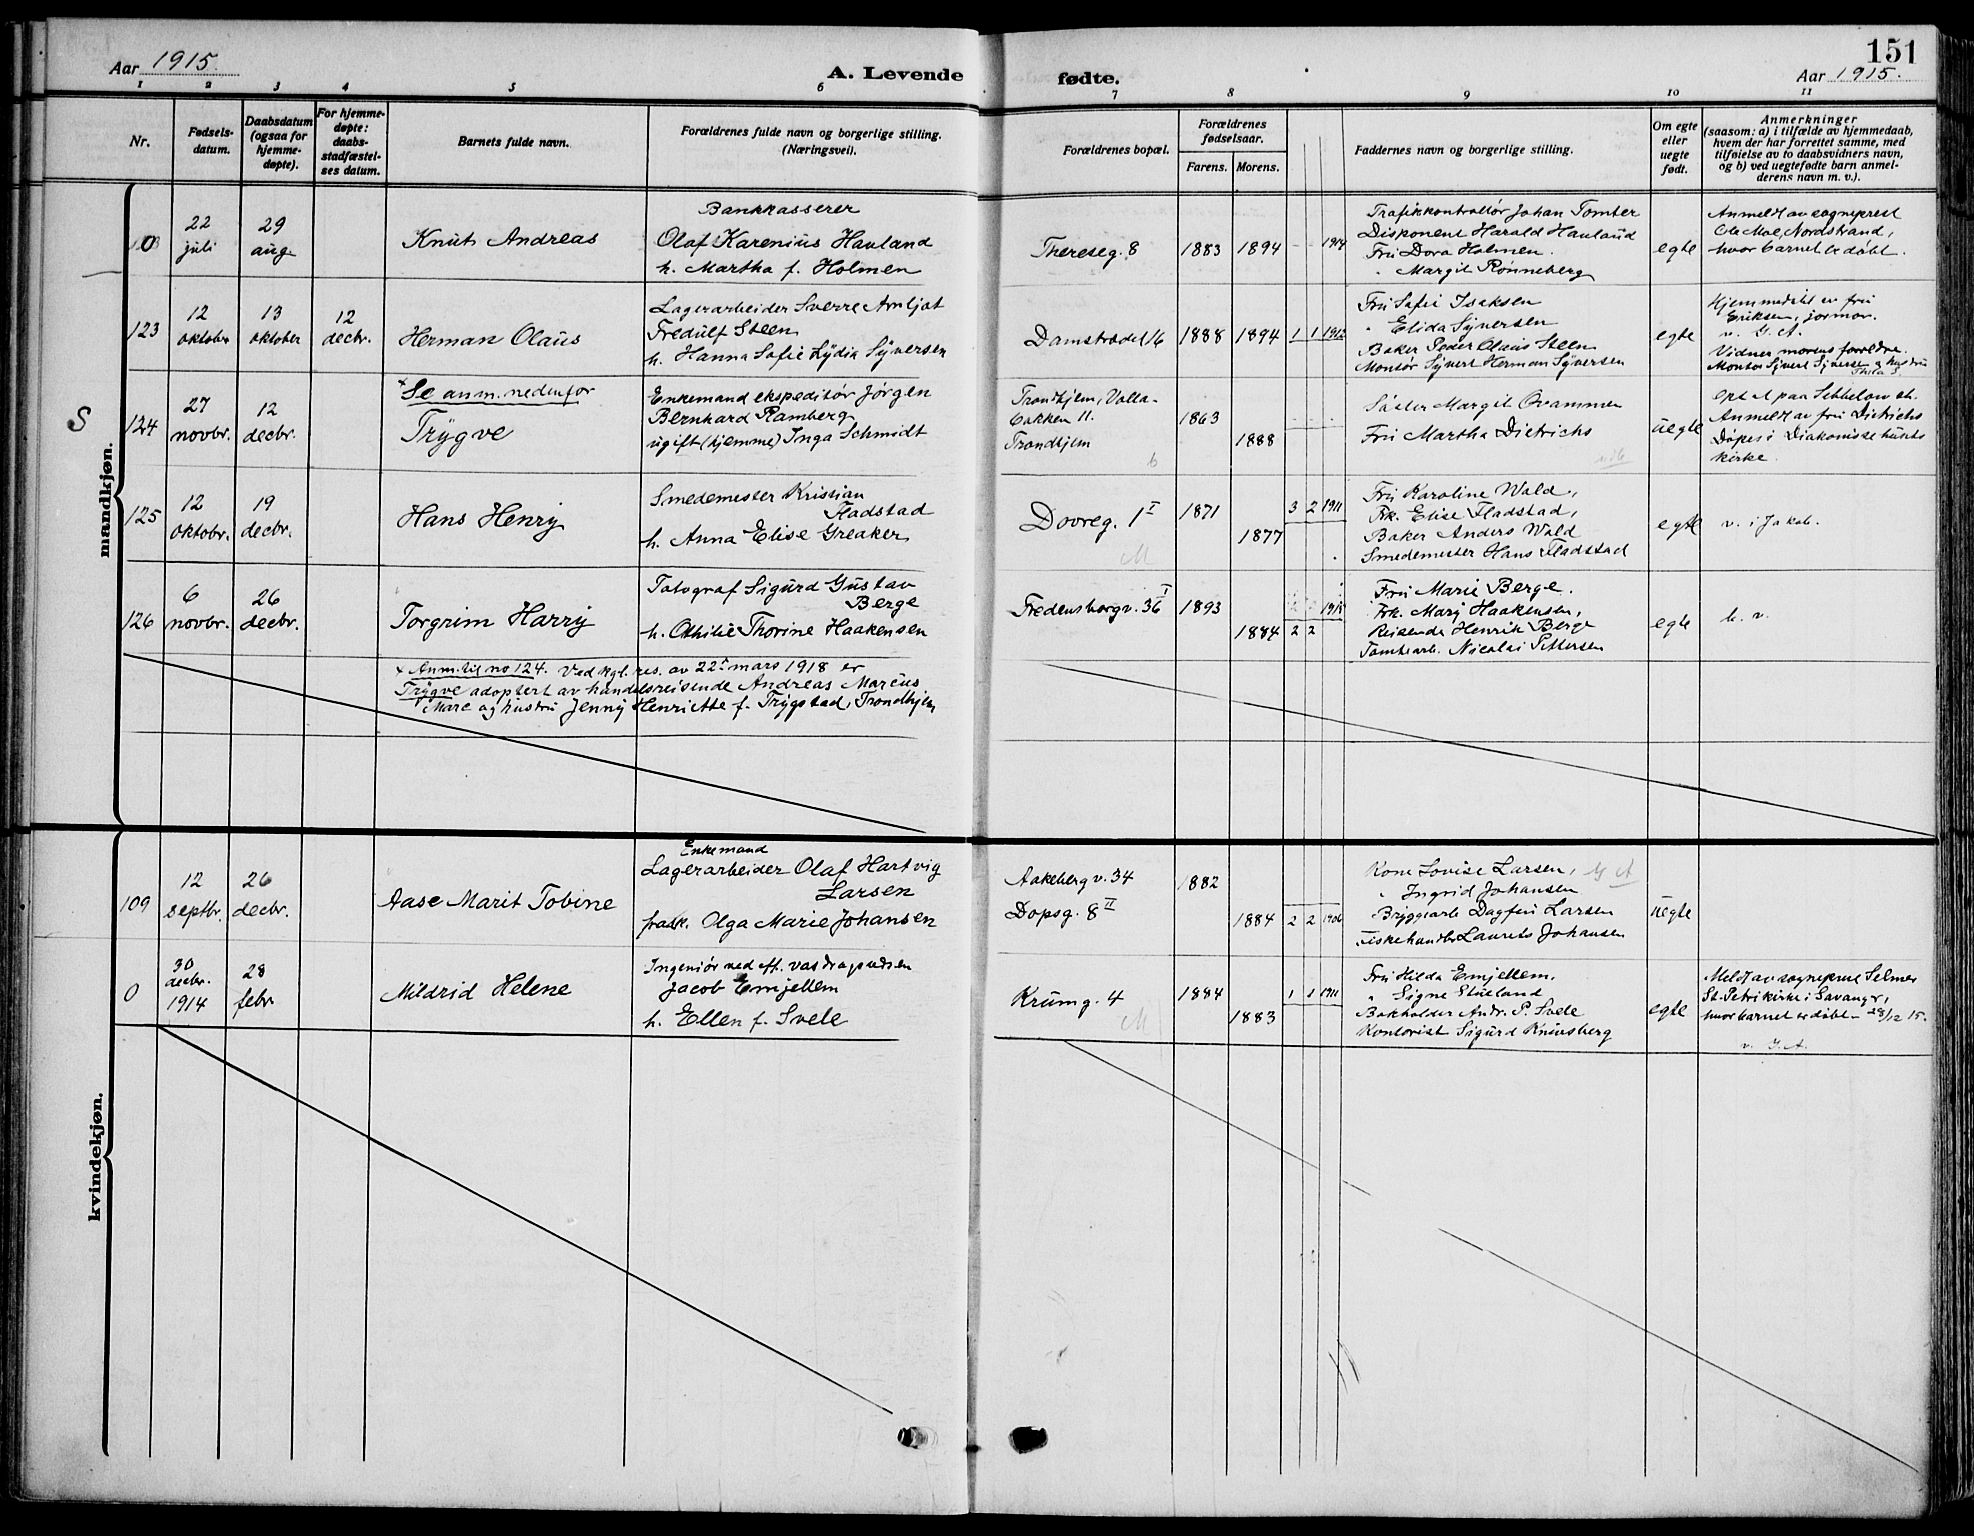 Aar 1915.
A. Levende
fødte.
151
Aar 1915.
1 2 3 4 5 6 7 8 9 10 11
Nr.
Fødsels-
datum.
Daabsdatum
(ogsaa for
hjemme-
døpte).
For hjemme-
døpte:
daabs-
stadfæstel-
ses datum.
Barnets fulde navn.
Forældrenes fulde navn og borgerlige stilling.
(Næringsvei).
Forældrenes bopæl.
Forældrenes
fødselsaar.
Farens. Morens.
Faddernes navn og borgerlige stilling.
Om egte
eller
uegte
født.
Anmerkninger
(saasom: a) i tilfælde av hjemmedaab,
hvem der har forrettet samme, med
tilføielse av to daabsvidners navn,
og b) ved uegtefødte barn anmel-
derens navn m. v.).
mandkjøn.
0
22
juli
29
aug.
Knut Andreas
Bankkasserer
Olaf Karenius Havland
h. Martha f. Holmen
Thereseg. 8
1883 1894 1914
Trafikkontrollør Johan Tomter
Disponent Harald Havland
Fru Dora Holmen.
" Margit Rønneberg
egte
Anmeldt av sogneprest
Ole Moe, Nordstrand,
hvor barnet er døbt.
123
12
oktober
13
oktober
12
decbr.
Herman Olaus
Lagerarbeider Sverre Arnljot
Fredulf Steen
h. Hanna Sofie Lydia Syversen
Damstrædet 16
1888 1894 1 1 1912
Fru Sofie Isaksen
" Elida Syversen
Baker Peder Olaus Steen
Montør Syvert Herman Syversen
egte
Hjemmedøbt av fru
Eriksen, jormor.
v. G. A.
Vidner, morens forældre.
Montør Syvert Syversen og hustru
S
124
27
novbr.
12
decbr.
× Se anm. nedenfor
Trygve
Enkemand ekspeditør Jørgen
Bernhard Ramberg
ugift (hjemme) Inga Schmidt
Trondhjem, Volla-
bakken 11.
Trondhjem
b
1863
1888
Søster Margit Ovammen
Fru Martha Dietrichs
uegte
Anmeldt av fru Dietrichs
Døpes i Diakonissehusets
kirke.
125
12
oktobr.
19
decbr.
Hans Henry
Smedemester Kristian
Fladstad
h. Anna Elise Greaker
Dovreg. 1 I
M
1871
1877
3 2 1911
Fru Karoline Wald,
Frk. Elise Fladstad,
Baker Anders Wald
Smedemester Hans Fladstad
egte
v. i Jakob.
126
6
novbr.
26
decbr.
Torgrim Harry
Fotograf Sigurd Gustav
Berge
h. Othilie Thorine Haakensen
Fredensborgv. 36 I
1893
1884 2 2
Fru Marie Berge.
Frk. Mary Haakensen,
Reisende Henrik Berge
Tomtearb. Nicolai Pettersen
egte
b. v.
× Anm. til no 124. Ved kgl. res. av 22. mars 1918 er
Trygve adoptert av handelsreisende Andreas Marcus
Mare og hustru Jenny Henriette f. Trygstad, Trondhjem
kvindekjøn.
109
12
septbr.
26
decbr.
Aase Marit Tobine
Enkemand
Lagerarbeider Olaf Hartvig
Larsen
Olga Marie Johansen
Aakebergv. 34
Dopsg. 8 II
1882
1884 2 2 1906
Kone Lovise Larsen, G A
" Ingrid Johansen
Bryggearb. Dagfin Larsen
Fiskehandler Laurets Johansen
uegte
0
30
decbr.
1914
28
febr.
Mildrid Helene
Ingeniør ved
Jacob Emjellem
h. Ellen f. Svele
Krumg. 4
M
1884
1883
1 1 1911
Fru Hilda Emjellem.
" Signe Stueland
Bokholder Andr. P. Svele
Kontorist Sigurd Knivsberg
egte
Meldt av sogneprest Selmer
St. Petri kirke i Stavanger,
hvor barnet er døbt 28/12 15.
v. G. A.